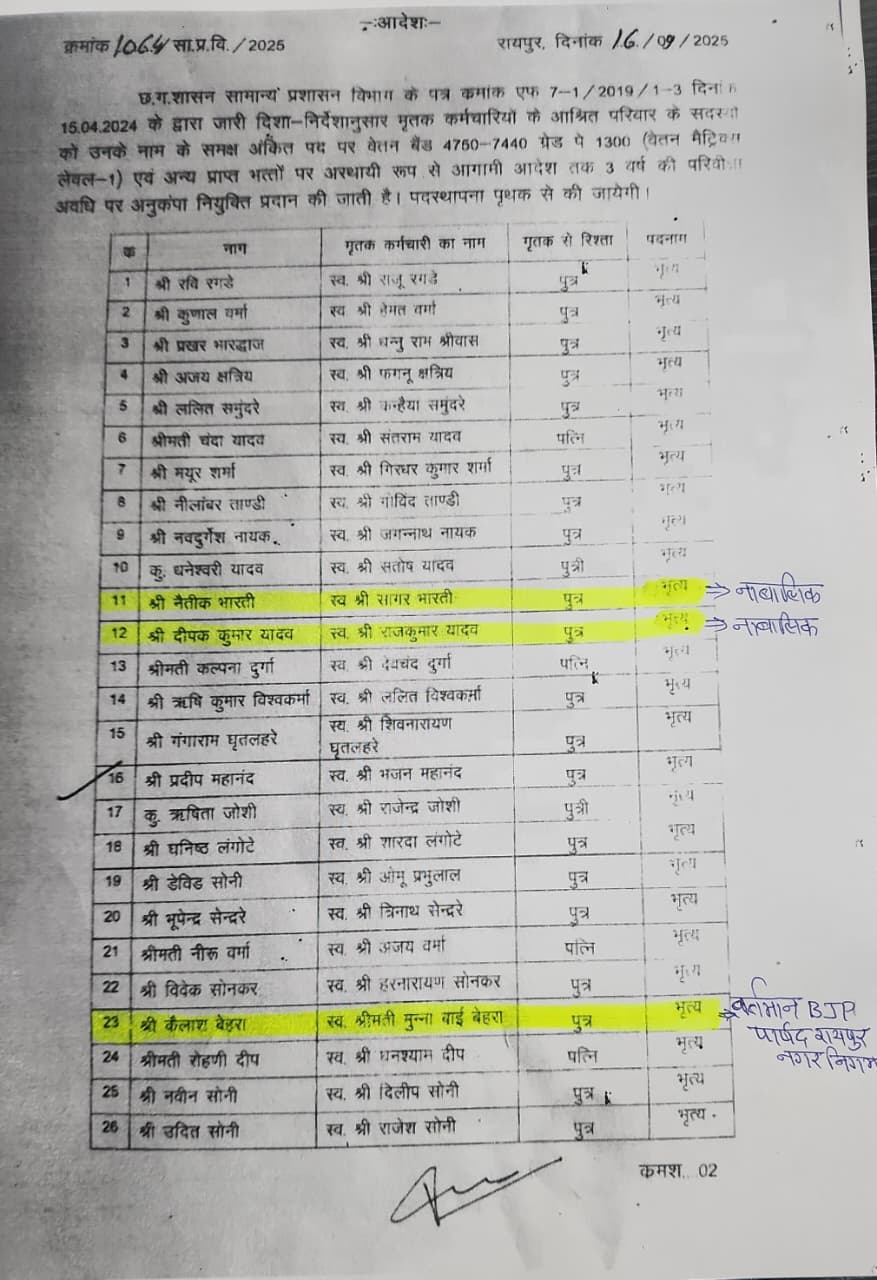 -:आदेश:-
क्रमांक 1064 सा.प्र.वि./2025 रायपुर, दिनांक 16/09/2025
छ.ग.शासन सामान्य प्रशासन विभाग के पत्र क्रमांक एफ 7-1/2019/1-3 दिनांक
15.04.2024 के द्वारा जारी दिशा-निर्देशानुसार मृतक कर्मचारियों के आश्रित परिवार के सदस्यों
को उनके नाम के समक्ष अंकित पद पर वेतन बैंड 4750-7440 ग्रेड पे 1300 (वेतन मैट्रिक्स
लेवल-1) एवं अन्य प्राप्त भत्तों पर अस्थायी रूप से आगामी आदेश तक 3 वर्ष की परिवीक्षा
अवधि पर अनुकंपा नियुक्ति प्रदान की जाती है। पदस्थापना पृथक से की जायेगी।
क नाम मृतक कर्मचारी का नाम मृतक से रिश्ता पदनाम
1 श्री रवि रगडे स्व. श्री राजू रगडे पुत्र भृत्य
2 श्री कुणाल वर्मा स्व. श्री हेमत वर्मा पुत्र भृत्य
3 श्री प्रखर भारद्वाज स्व. श्री धन्नु राम श्रीवास पुत्र भृत्य
4 श्री अजय क्षत्रिय स्व. श्री फगनू क्षत्रिय पुत्र भृत्य
5 श्री ललित समुंदरे स्व. श्री कन्हैया समुंदरे पुत्र भृत्य
6 श्रीमती चंदा यादव स्व. श्री संतराम यादव पत्नि भृत्य
7 श्री मयूर शर्मा स्व. श्री गिरधर कुमार शर्मा पुत्र भृत्य
8 श्री नीलांबर ताण्डी स्व. श्री गोविंद ताण्डी पुत्र भृत्य
9 श्री नवदुर्गेश नायक स्व. श्री जगन्नाथ नायक पुत्र भृत्य
10 कु. धनेश्वरी यादव स्व. श्री संतोष यादव पुत्री भृत्य
11 श्री नैतीक भारती स्व श्री सागर भारती पुत्र भृत्य ⇒ नाबालिक
12 श्री दीपक कुमार यादव स्व. श्री राजकुमार यादव पुत्र भृत्य ⇒ नाबालिक
13 श्रीमती कल्पना दुर्गा स्व. श्री देवचंद दुर्गा पत्नि भृत्य
14 श्री ऋषि कुमार विश्वकर्मा स्व. श्री ललित विश्वकर्मा पुत्र भृत्य
15 श्री गंगाराम घृतलहरे स्व. श्री शिवनारायण पुत्र भृत्य
घृतलहरे
16 श्री प्रदीप महानंद स्व. श्री भजन महानंद पुत्र भृत्य
17 कु. ऋषिता जोशी स्व. श्री राजेन्द्र जोशी पुत्री भृत्य
18 श्री घनिष्ठ लंगोटे स्व. श्री शारदा लंगोटे पुत्र भृत्य
19 श्री डेविड सोनी स्व. श्री ओमू प्रभुलाल पुत्र भृत्य
20 श्री भूपेन्द्र सेन्द्ररे स्व. श्री त्रिनाथ सेन्द्ररे पुत्र भृत्य
21 श्रीमती नीरू वर्मा स्व. श्री अजय वर्मा पत्नि भृत्य
22 श्री विवेक सोनकर स्व. श्री हरनारायण सोनकर पुत्र भृत्य
23 श्री कैलाश बेहरा स्व. श्रीमती मुन्ना बाई बेहरा पुत्र भृत्य ⇒ वर्तमान BJP
पार्षद रायपुर
नगर निगम
24 श्रीमती रोहणी दीप स्व. श्री घनश्याम दीप पत्नि भृत्य
25 श्री नवीन सोनी स्व. श्री दिलीप सोनी पुत्र भृत्य
26 श्री उदित सोनी स्व. श्री राजेश सोनी पुत्र भृत्य
कमश...02